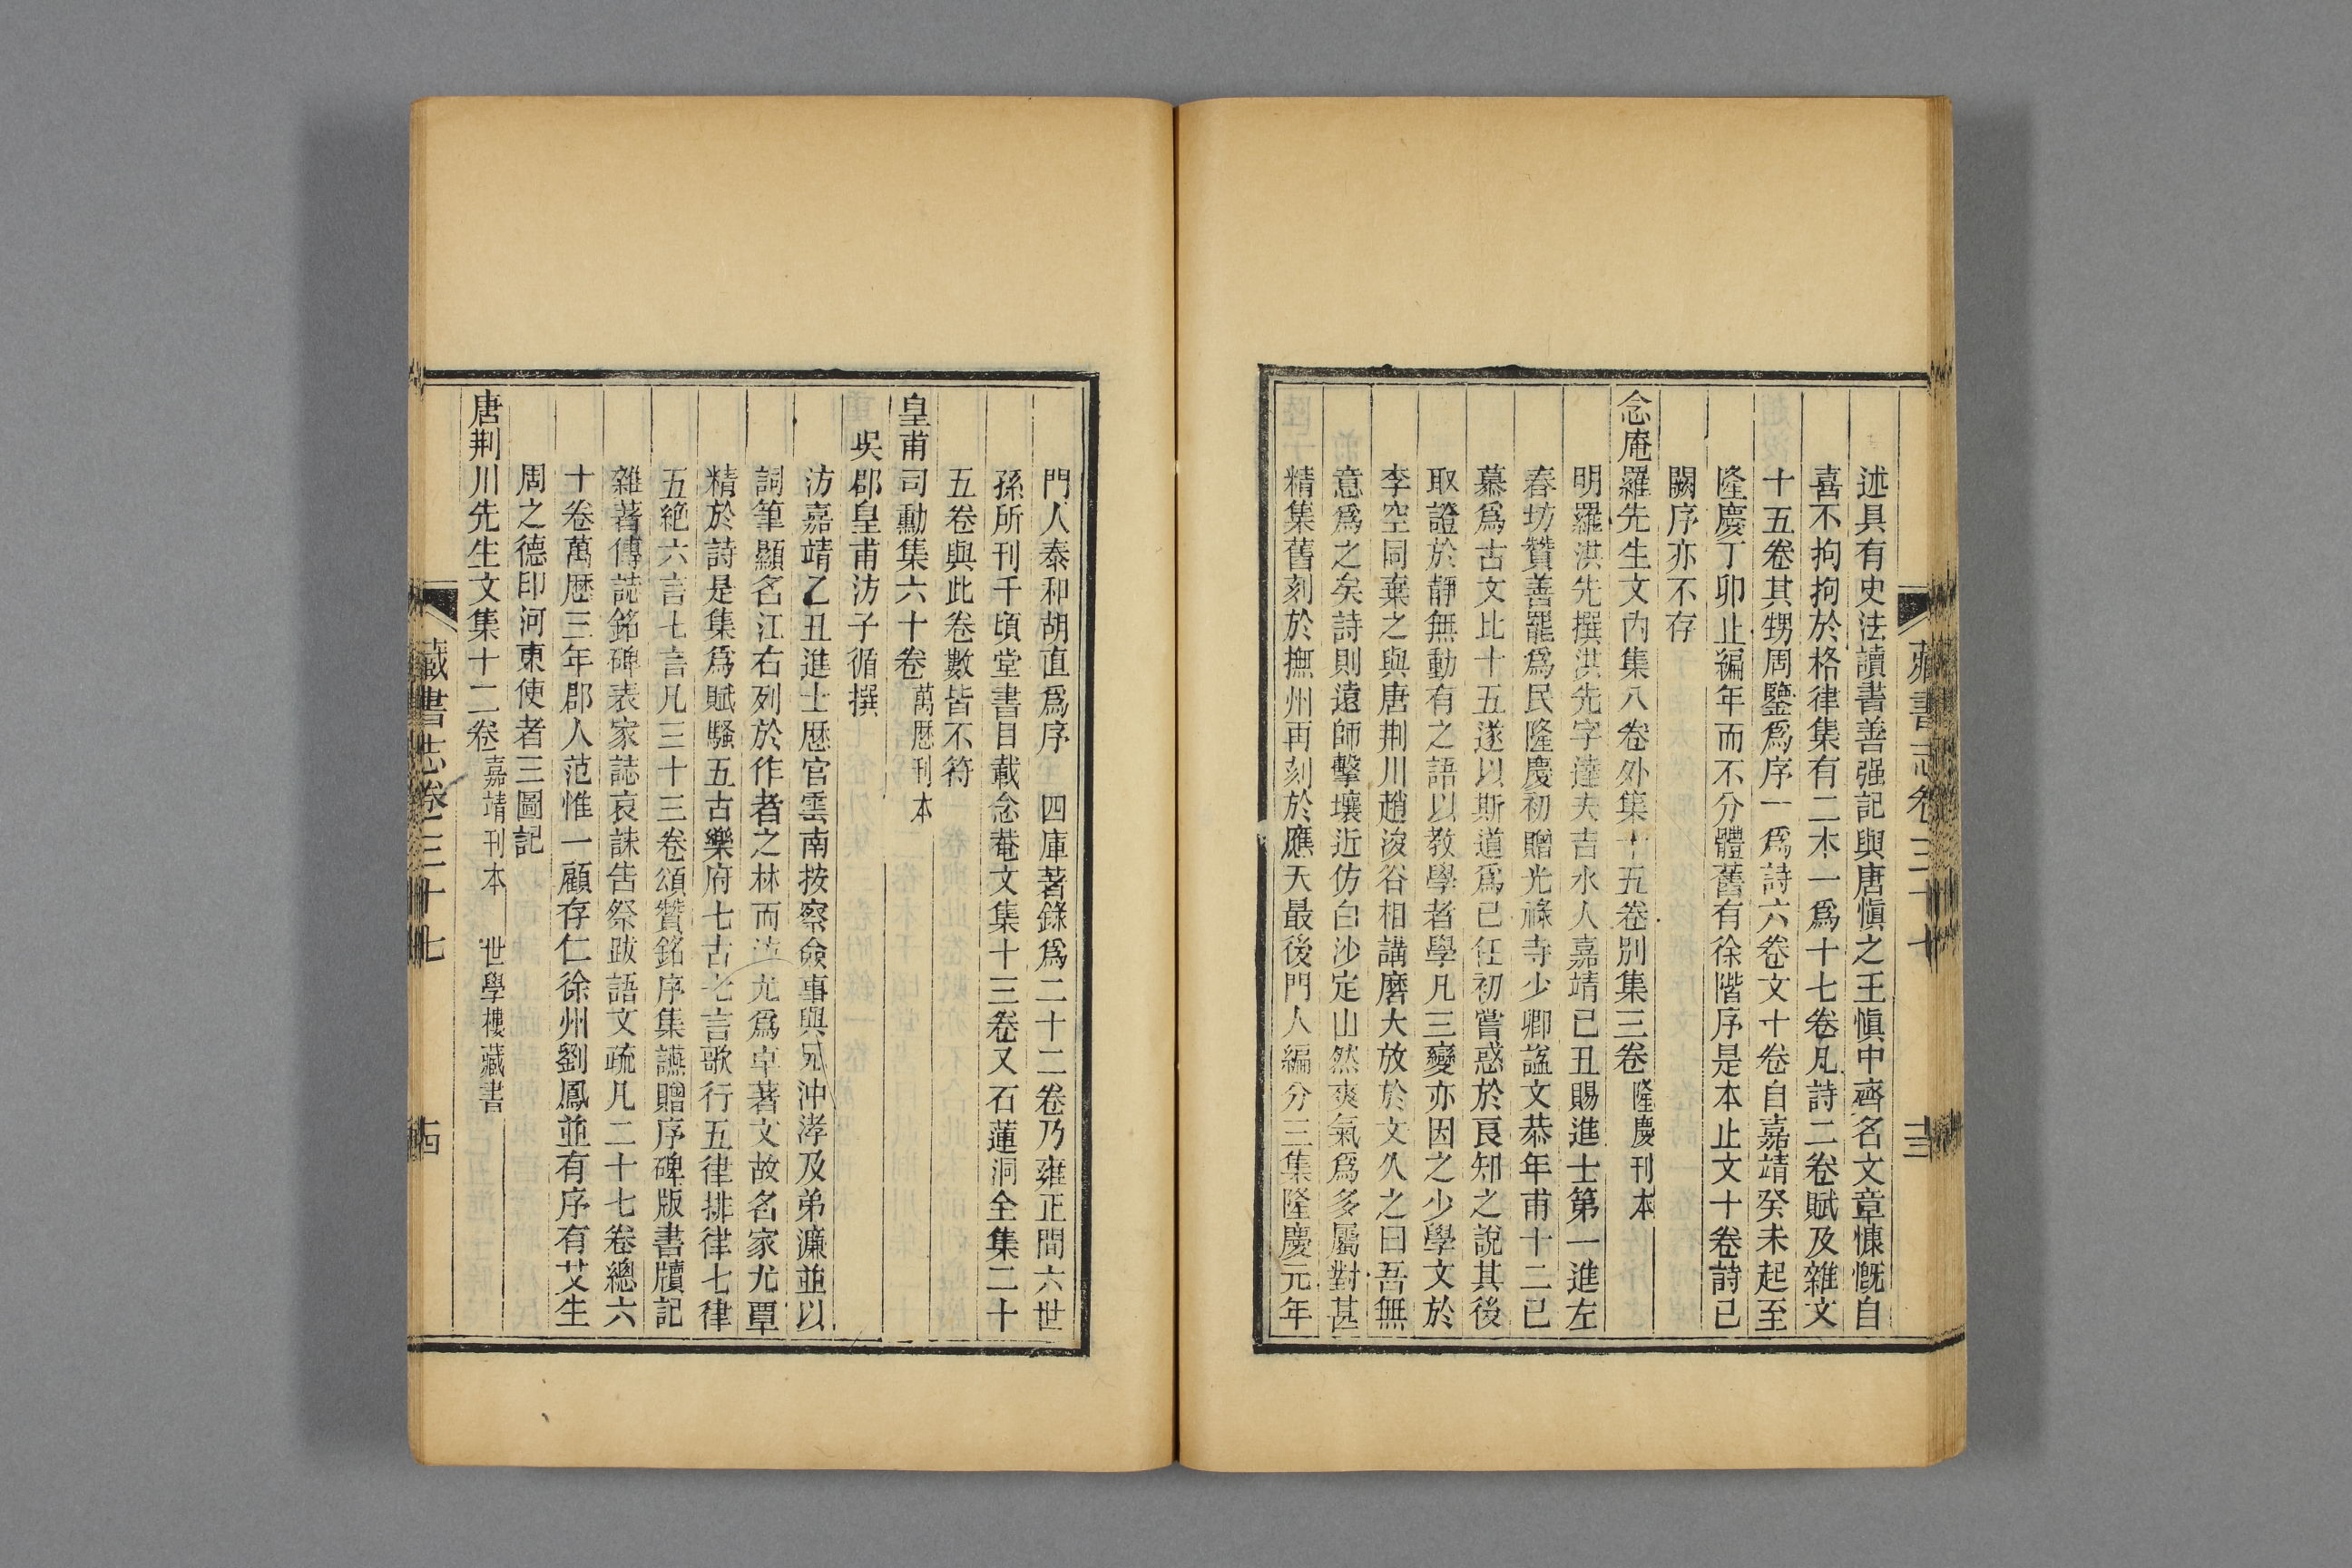 藏書志卷三十七
十三
述具有史法讀書善强記與唐愼之王愼中齊名文章慷慨自
喜不拘拘於格律集有二本一爲十七卷凡詩二卷賦及雜文
十五卷其甥周鑒爲序一爲詩六卷文十卷自嘉靖癸未起至
隆慶丁卯止編年而不分體舊有徐階序是本止文十卷詩已
闕序亦不存
念庵羅先生文內集八卷外集十五卷別集三卷 隆慶刊本
明羅洪先撰洪先字達夫吉水人嘉靖已丑賜進士第一進左
春坊贊善罷爲民隆慶初贈光祿寺少卿諡文恭年甫十二已
慕爲古文比十五遂以斯道爲已任初嘗惑於良知之說其後
取證於靜無動有之語以教學者學凡三變亦因之少學文於
李空同棄之與唐荆川趙浚谷相講磨大放於文久之曰吾無
意爲之矣詩則遠師擊壤近仿白沙定山然爽氣爲多屬對甚
精集舊刻於撫州再刻於應天最後門人編分三集隆慶元年
門人泰和胡直爲序 四庫著錄爲二十二卷乃雍正間六世
孫所刊千頃堂書目載念菴文集十三卷又石蓮洞全集二十
五卷與此卷數皆不符
皇甫司勳集六十卷 萬歷刊本
吳郡皇甫汸子循撰
汸嘉靖乙丑進士歷官雲南按察僉事與兄沖涍及弟濂並以
詞筆顯名江右列於作者之林而汸尤爲卓著文故名家尤覃
精於詩是集爲賦騷五古樂府七古七言歌行五律排律七律
五絶六言七言凡三十三卷頌贊銘序集讌贈序碑版書牘記
雜著傳誌銘碑表家誌哀誄告祭跋語文疏凡二十七卷總六
十卷萬歷三年郡人范惟一顧存仁徐州劉鳳並有序有艾生
周之德印河東使者三圖記
唐荆川先生文集十二卷 嘉靖刊本 世學樓藏書
藏書志卷三十七
十四